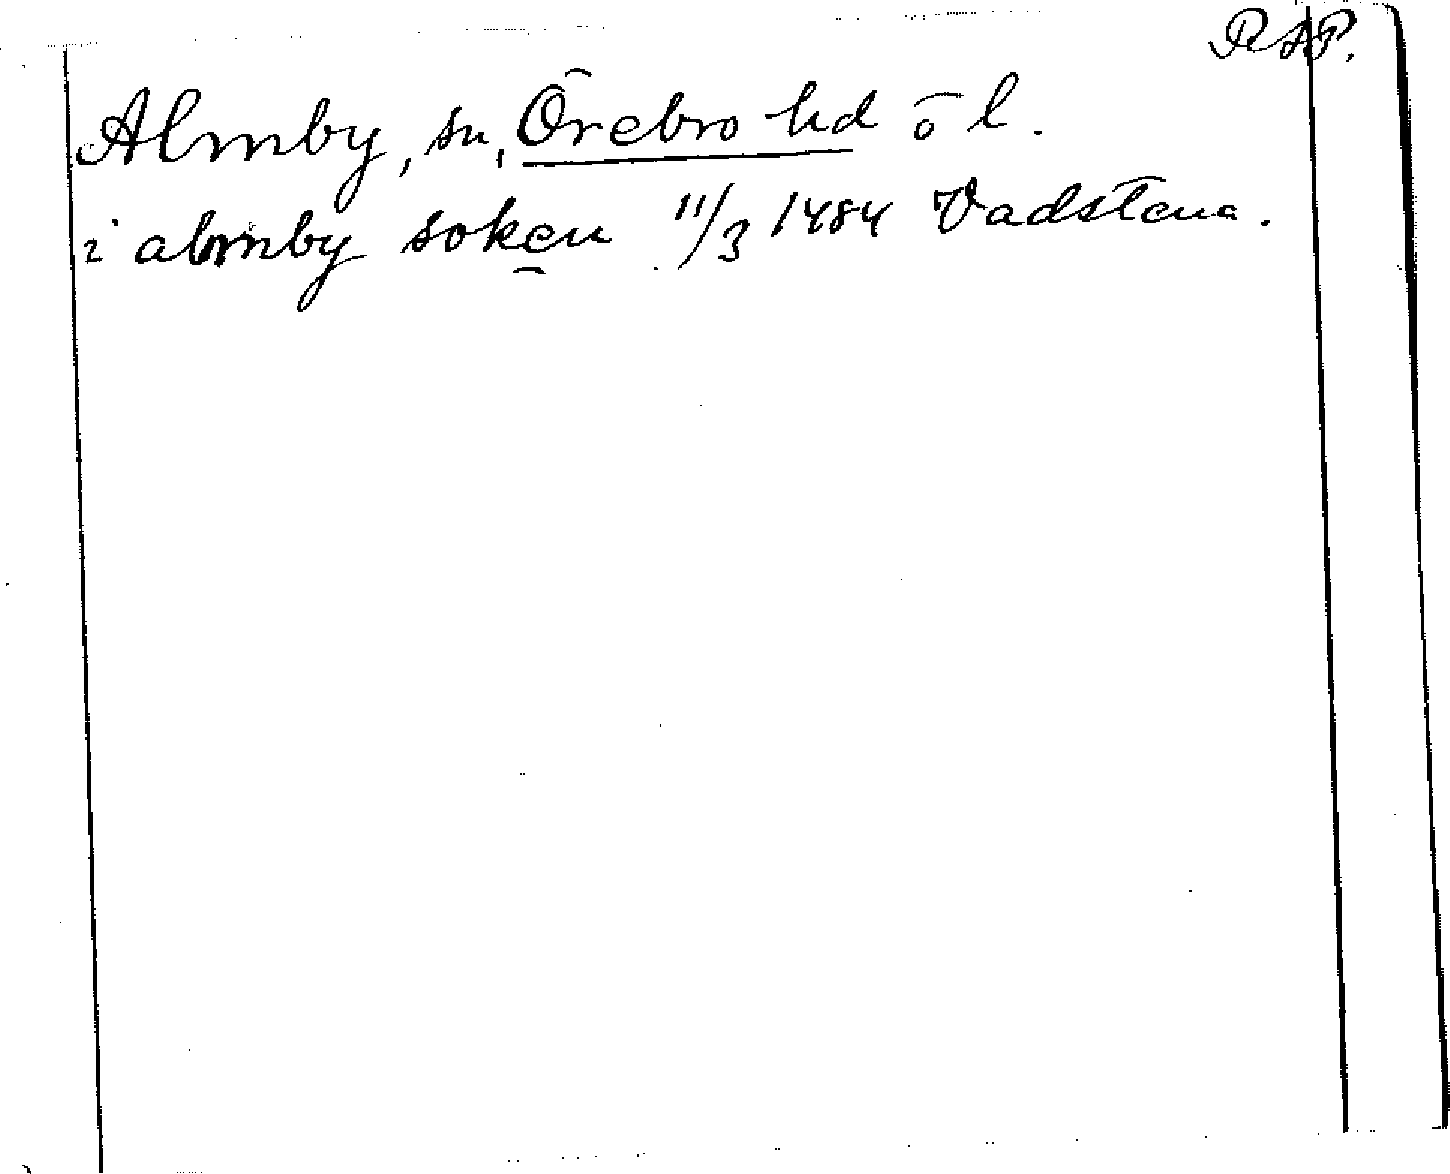 RAP.
Almby, sn, Örebro hd ö l.
i almby soken 11/3 1484 Vadstena.